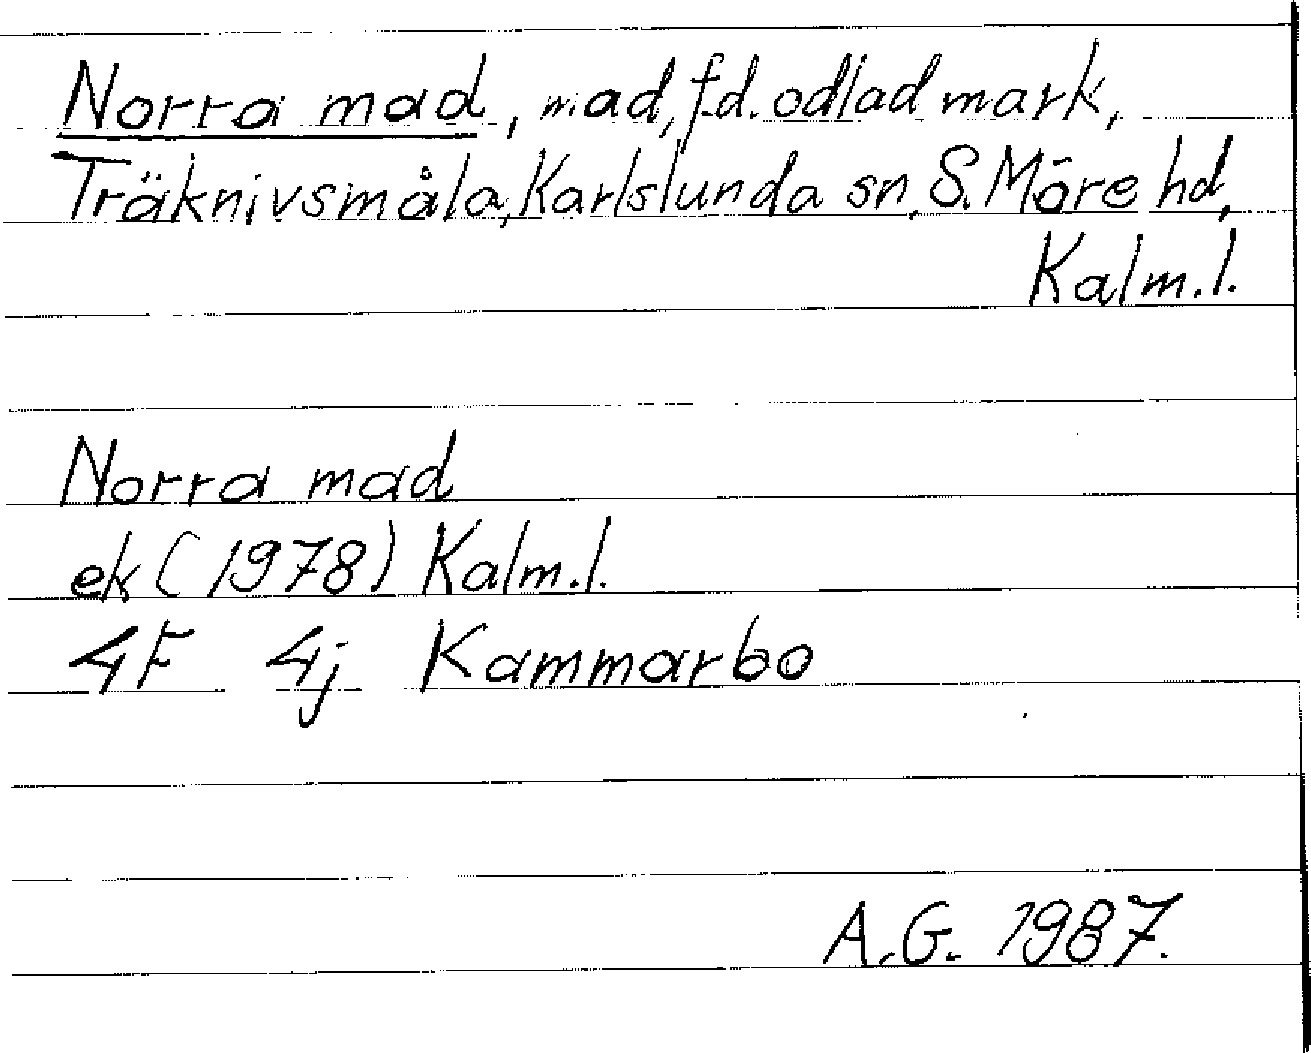 Norra mad, mad, f.d. odlad mark,
Träknivsmåla, Karlslunda sn, S. Möre hd,
Kalm.l.
Norra mad
ek (1978) Kalm.l.
4F 4j Kammarbo
A.G. 1987.